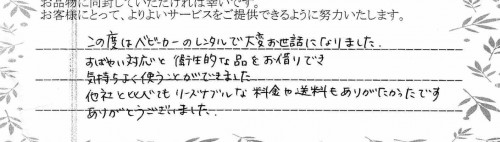 お品物に同封していただければ幸いです。
お客様にとって、よりよいサービスをご提供できるように努力いたします。
この度はベビーカーのレンタルで大変お世話になりました.
すばやい対応と衛生的な品をお借りでき
気持ちよく使うことができました
他社と比べてもリーズナブルな料金や送料もありがたかったです
ありがとうございました.